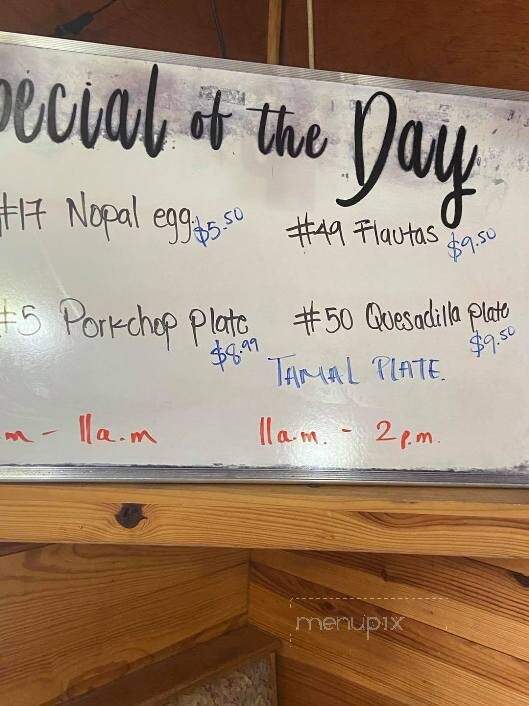 pecial of the Day
#17 Nopal egg $5.50
#49 Flautas $9.50
#5 Porkchop Plate $8.99
#50 Quesadilla Plate $9.50
TAMAL PLATE.
m - 11a.m
11a.m. - 2p.m.
menupix